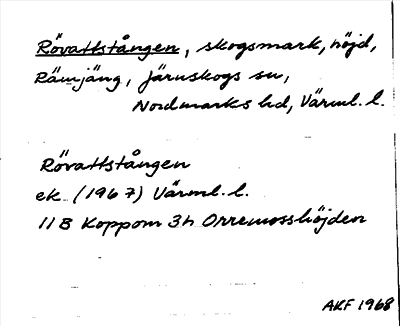 Rövattstången, skogsmark, höjd,
Rämjäng, Järnskogs sn,
Nordmarks hd, Värml. l.
Rövattstången
ek. (1967) Värml. l.
11B Koppom 3h Orremosshöjden
AKF 1968